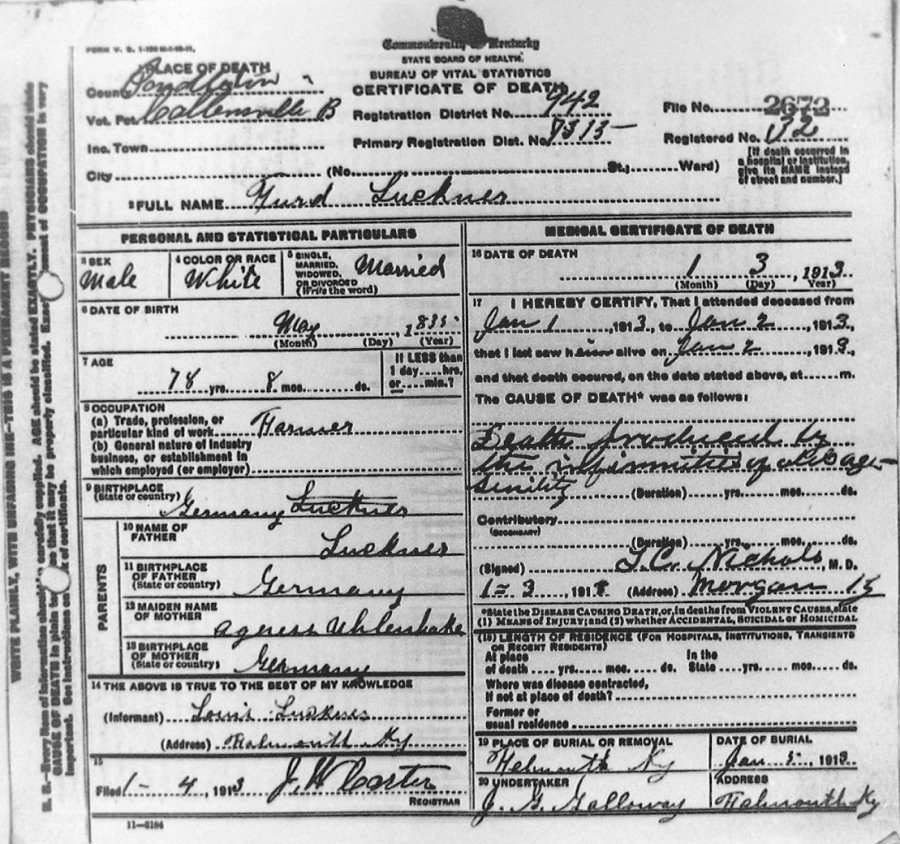 FORM V. S. 1-
Commonwealth of Kentucky
STATE BOARD OF HEALTH.
BUREAU OF VITAL STATISTICS
CERTIFICATE OF DEATH
PLACE OF DEATH
County Pendleton
Vot. Pct. Callensville B
Inc. Town
City (No. St.; Ward)
Registration District No. 942
Primary Registration Dist. No. 7313
File No. 2672
Registered No. 132
[If death occurred in
a hospital or institution,
give its NAME instead
of street and number.]
2 FULL NAME Furd Luckner
PERSONAL AND STATISTICAL PARTICULARS
3 SEX
Male
4 COLOR OR RACE
White
5 SINGLE,
MARRIED,
WIDOWED,
OR DIVORCED
(Write the word)
Married
6 DATE OF BIRTH
May 1835
(Month) (Day) (Year)
7 AGE
78 yrs. 8 mos. ds.
If LESS than
1 day, hrs.
or min.?
8 OCCUPATION
(a) Trade, profession, or
particular kind of work Farmer
(b) General nature of industry
business, or establishment in
which employed (or employer)
9 BIRTHPLACE
(State or country)
Germany Luckner
PARENTS
10 NAME OF
FATHER
Luckner
11 BIRTHPLACE
OF FATHER
(State or country)
Germany
12 MAIDEN NAME
OF MOTHER
13 BIRTHPLACE
OF MOTHER
(State or country)
Germany
14 THE ABOVE IS TRUE TO THE BEST OF MY KNOWLEDGE
(Informant) Louis Luckner
(Address) Falmouth Ky
15
Filed 1- 4, 1913 J. H. Carter
REGISTRAR
11—3184
MEDICAL CERTIFICATE OF DEATH
16 DATE OF DEATH
1 3, 1913.
(Month) (Day) Year)
17 I HEREBY CERTIFY, That I attended deceased from
Jan 1, 1913, to Jan 2, 1913,
that I last saw him alive on Jan 2, 1913,
and that death occured, on the date stated above, at m.
The CAUSE OF DEATH* was as follows:
Death produced by
the infirmities of old age-
Senility (Duration) yrs. mos. ds.
Contributory
(SECONDARY)
(Duration) yrs. mos. ds.
(Signed) T. C. Nichols, M. D.
1-3 191 (Address) Morgan Ky
*State the DISEASE CAUSING DEATH, or, in deaths from VIOLENT CAUSES, state
(1) MEANS OF INJURY; and (2) whether ACCIDENTAL, SUICIDAL or HOMICIDAL
(18) LENGTH OF RESIDENCE (FOR HOSPITALS, INSTITUTIONS, TRANSIENTS
OR RECENT RESIDENTS)
At place In the
of death yrs. mos. ds. State yrs. mos. ds.
Where was disease contracted,
if not at place of death?
Former or
usual residence
19 PLACE OF BURIAL OR REMOVAL
Falmouth Ky
DATE OF BURIAL
Jan 5, 1913
20 UNDERTAKER
J. G. Galloway
ADDRESS
Falmouth Ky
WRITE PLAINLY, WITH UNFADING INK—THIS IS A PERMANENT RECORD
N. B.—Every item of information should be carefully supplied. AGE should be stated EXACTLY. PHYSICIANS should state
CAUSE OF DEATH in plain so that it may be properly classified. Exact of OCCUPATION is very
important. See instructions on of certificate.